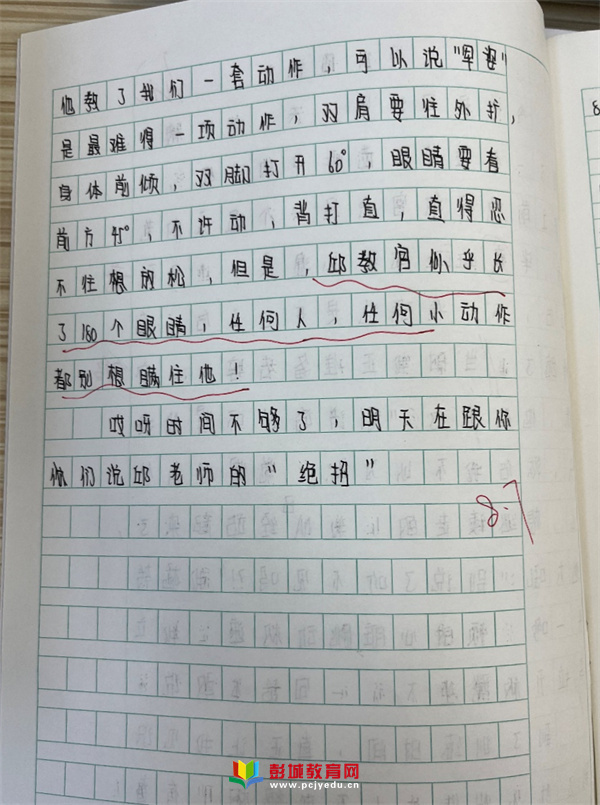 他教了我们一套动作，可以说“军姿”
是最难得一项动作，双肩要往外扩，
身体前倾，双脚打开60°，眼睛要看
前方45°，不许动，背打直，直得忍
不住想放松，但是，邱教官似乎长
了180个眼睛，任何人，任何小动作
都别想瞒住他！
哎呀时间不够了，明天在跟你
你们说邱老师的“绝招”
8.7
彭城教育网
www.pcjyedu.cn